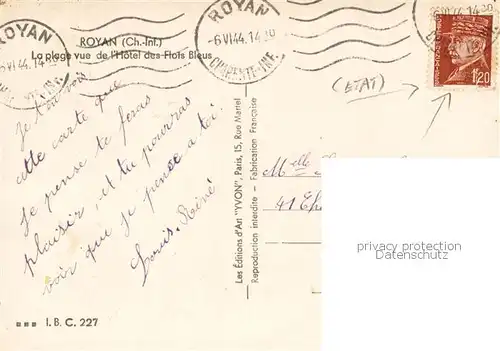 ROYAN
-6 VI 44. 14 30
CHARENTE-INF.
ROYAN (Ch.-Inf.)
La plage vue de l'Hôtel des Flots Bleus
ROYAN
6 VI 44. 14
VI 44 14 30
1F20
(ETAT)
Je t'envois
cette carte que
je pense te feras
plaisir, et tu pourras
voir que je pense a toi.
Louis. Réné
Les Éditions d'Art "YVON", Paris, 15, Rue Martel
Reproduction interdite - Fabrication Française
Melle
41
privacy protection
Datenschutz
I. B. C. 227